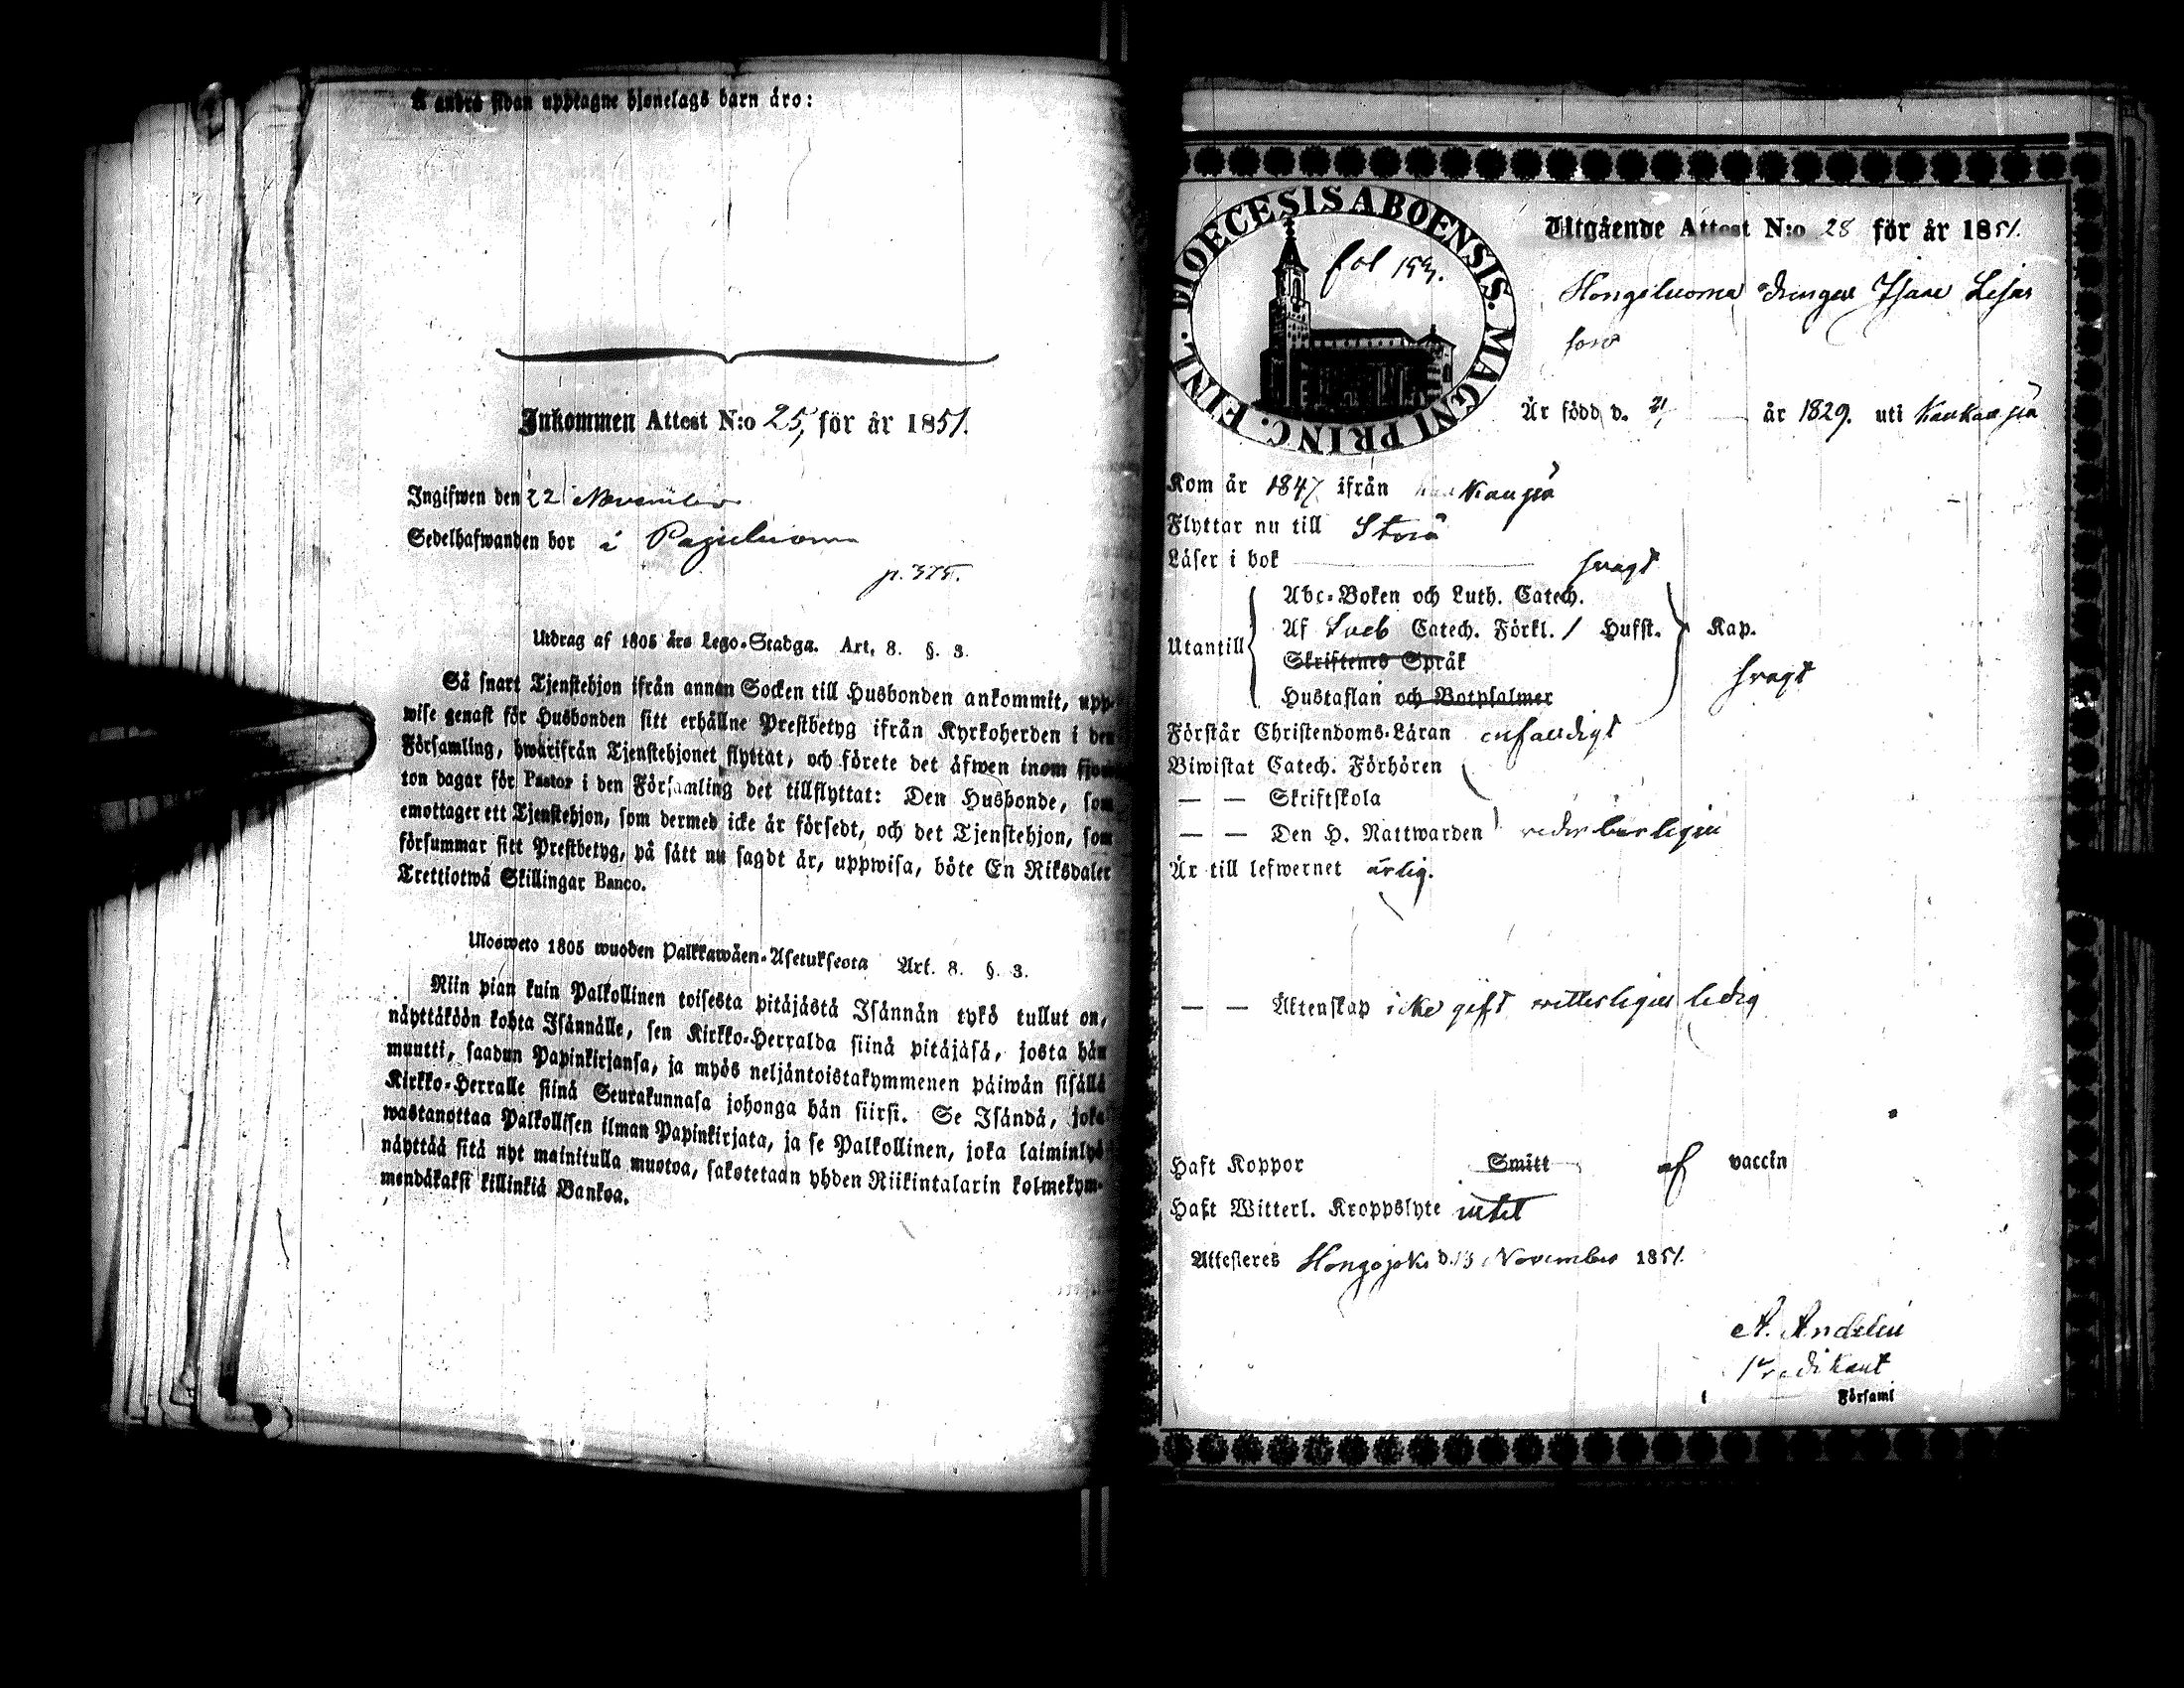 å andra sidan upptagne hjonelags barn äro:
Inkommen Attest N:o 25, för år 1851.
Ingifwen den 22 November
Sedelhafwanden bor i
p. 375.
Utdrag af 1805 års Lego-Stadga. Art. 8. §. 3.
Så snart Tjenstehjon ifrån annan Socken till Husbonden ankommit, upp-
wise genast för Husbonden sitt erhållne Prestbetyg ifrån Kyrkoherden i den
Församling, hwarifrån Tjenstehjonet flyttat, och förete det äfwen inom fjor-
ton dagar för Pastor i den Församling det tillflyttat: Den Husbonde, som
emottager ett Tjenstehjon, som dermed icke är försedt, och det Tjenstehjon, som
försummar sitt Prestbetyg, på sätt nu sagdt är, uppwisa, böte En Riksdaler
Trettiotwå Skillingar Banco.
Ulosweto 1805 wuoden Palkkawäen-Asetuksesta Art. 8. §. 3.
Niin pian kuin Palkollinen toisesta pitäjästä Isännän tykö tullut on,
näyttäköön kohta Isännälle, sen Kirkko-Herralda siinä pitäjäsä, josta hän
muutti, saadun Papinkirjansa, ja myös neljäntoistakymmenen päiwän sisällä
Kirkko-Herralle siinä Seurakunnasa johonga hän siirsi. Se Isändä, joka
wastanottaa Palkollisen ilman Papinkirjata, ja se Palkollinen, joka laiminlyö
näyttää sitä nyt mainitulla muotoa, sakotetaan yhden Riikintalarin kolmekym-
mendäkaksi killinkiä Bankoa.
DIOECESIS ABOENSIS. MAGNI PRINC. FINL.
fol 153.
Utgående Attest N:o 28 för år 1851.
Hongoluoma drengen Isaac Lisas
son
Är född d. 21/ år 1829. uti Kauhajoki
Kom år 1847 ifrån Kauhajoki
Flyttar nu till Storå
Läser i bok swagt
Abc-Boken och Luth. Catech.
Utantill Af Sveb Catech. Förkl. / Hufst. Kap.
Skriftenes Språk
swagt
Hustaflan och Botpsalmer
Förstår Christendoms-Läran enfaldigt
Biwistat Catech. Förhören
— — Skriftskola
— — Den H. Nattwarden wederbörligen
Är till lefwernet ärlig.
— — Äktenskap icke gift witterligen ledig
Haft Koppor Smitt af vaccin
Haft Witterl. Kroppslyte intet
Attesteres Hongojoki d. 13 November 1851.
A. Andelin
Predikant
i Församl